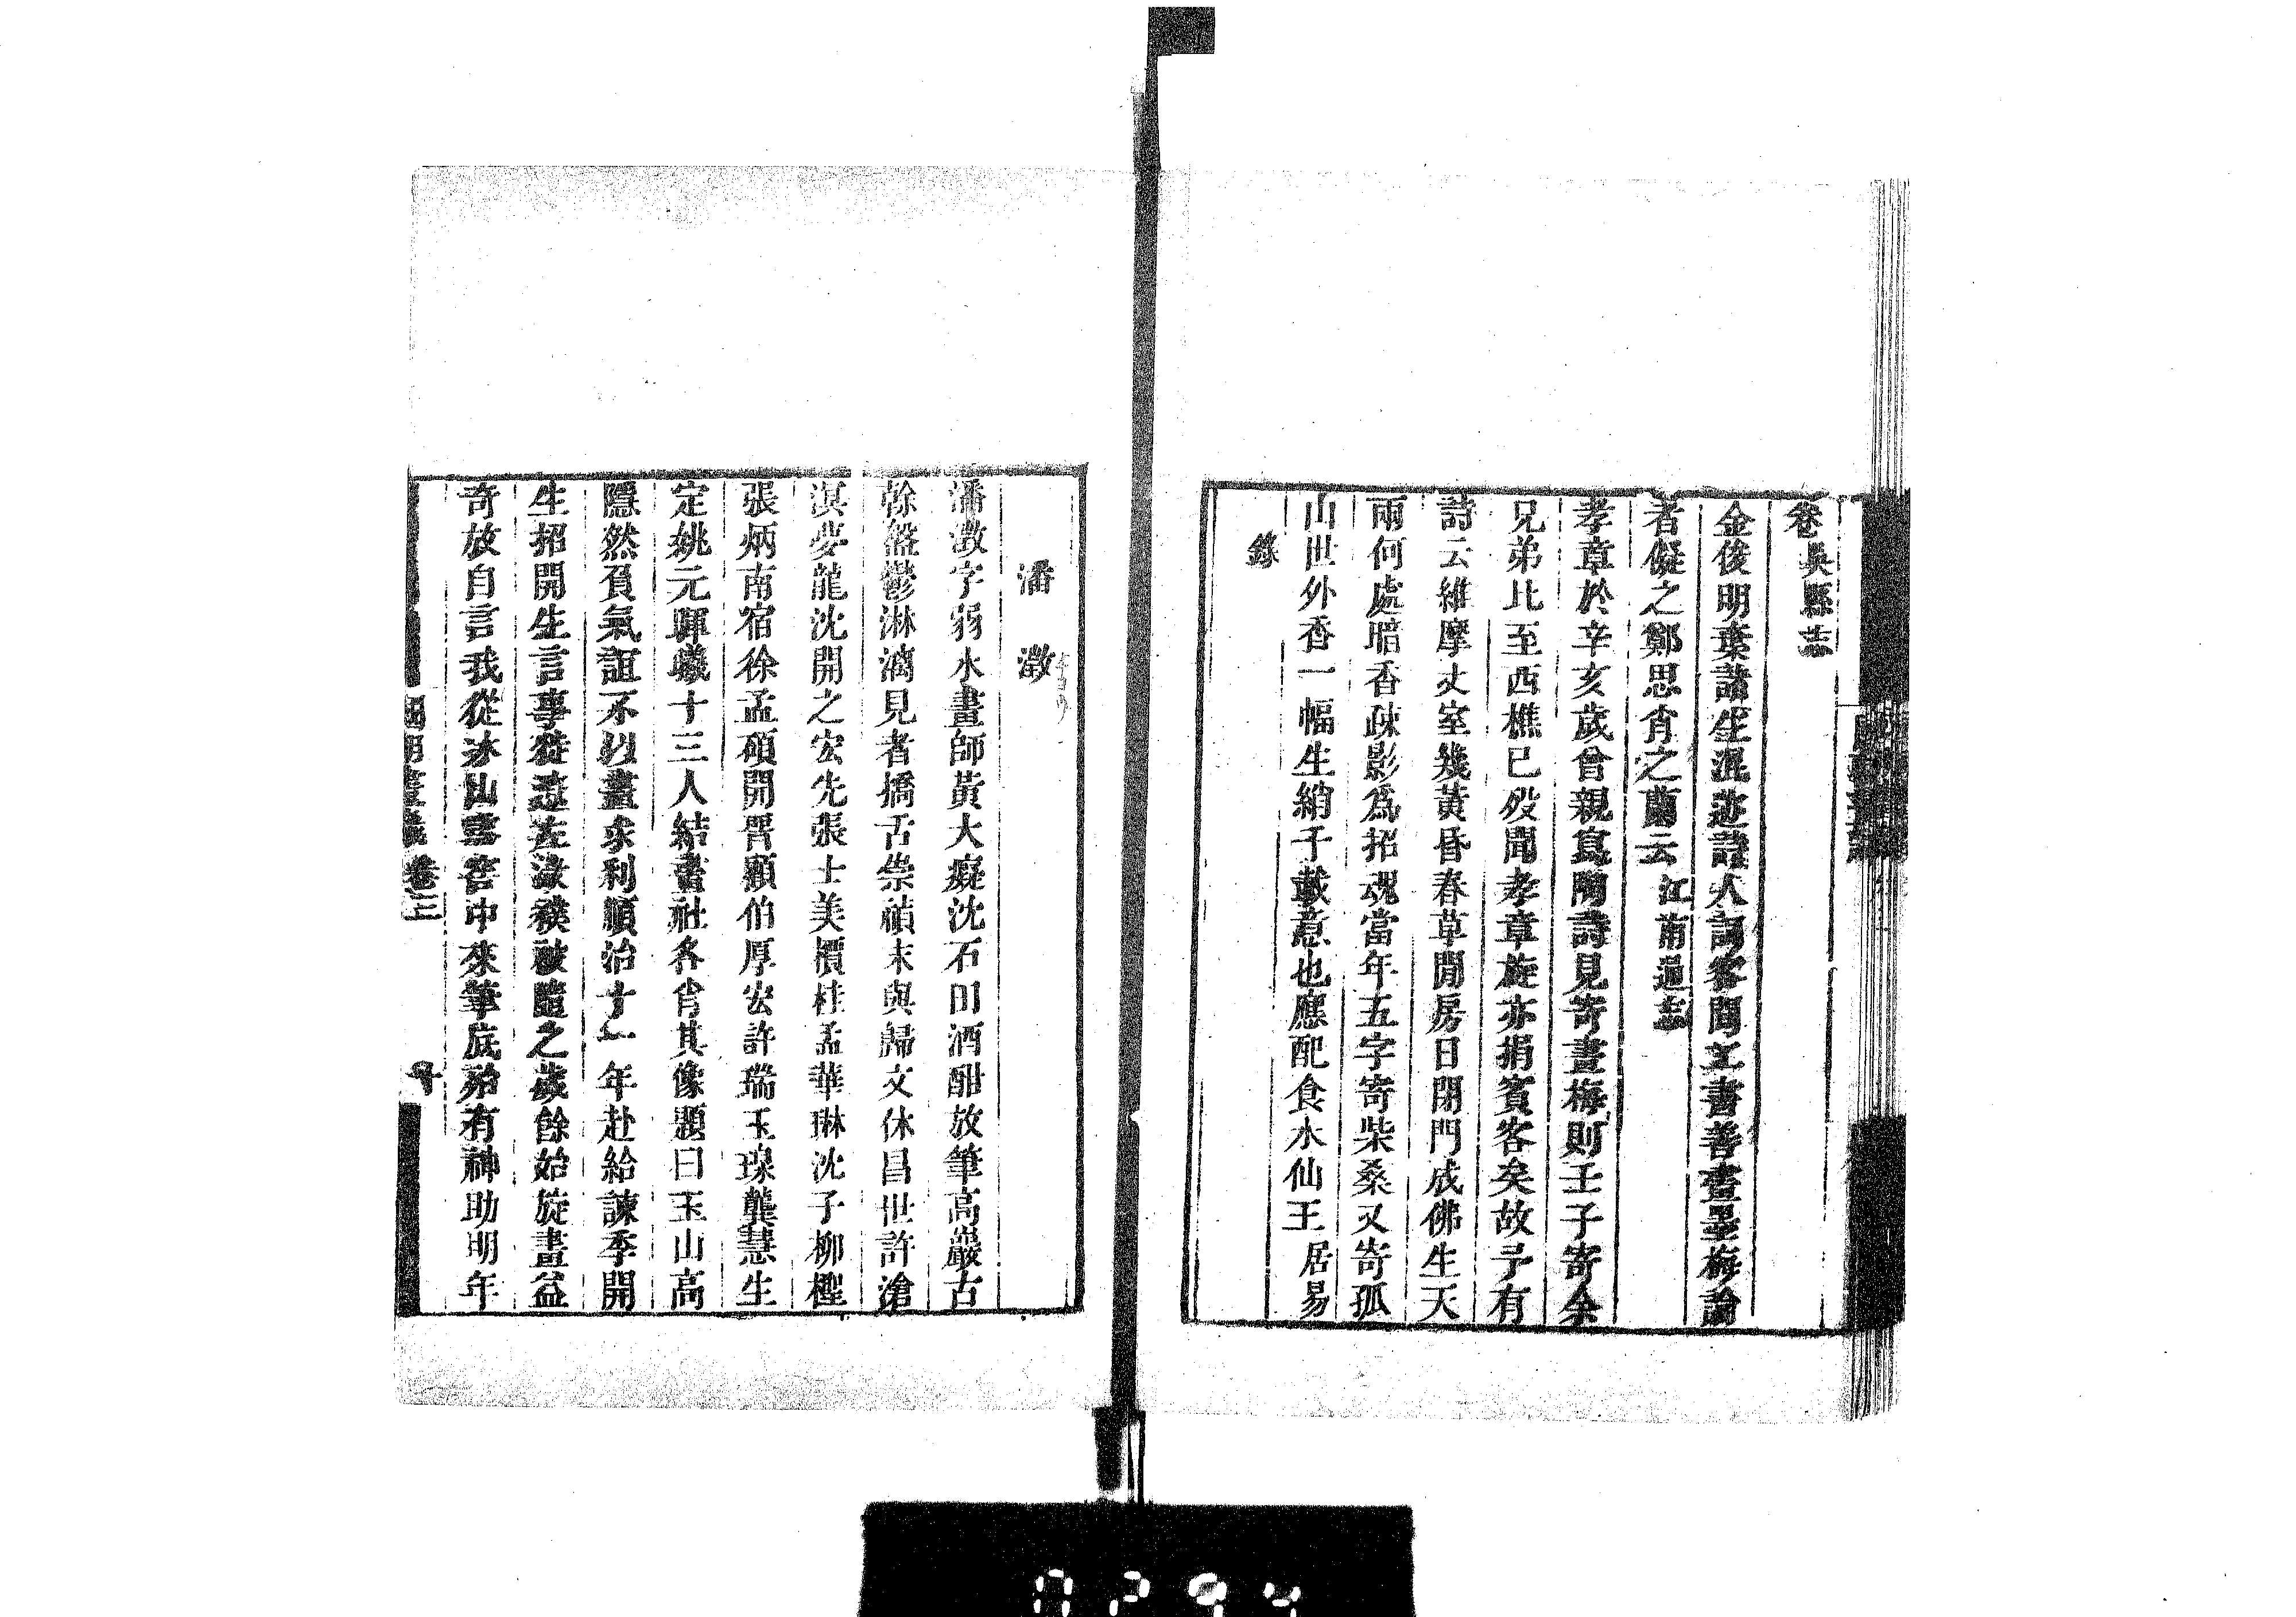 卷吳縣志
金俊明棄諸生混迹詩人詞客間工書善畫墨梅論
者儗之鄭思肖之蘭云江南通志
孝章於辛亥歲曾親寫陶詩見寄畫梅則壬子寄余
兄弟比至西樵已歿聞孝章旋亦捐賓客矣故予有
詩云維摩丈室幾黃昏春草閒房日閉門成佛生天
雨何處暗香疎影為招魂當年五字寄柴桑又寄孤
山世外香一幅生綃千載意也應配食水仙王居易
錄
潘澂
潘澂字弱水畫師黃大癡沈石田酒酣放筆高巖古
幹盤鬱淋漓見者撟舌崇禎末與歸文休昌世許滄
溟夢龍沈開之宏先張士美檟桂孟華琳沈子柳檉
張炳南宿徐孟碩開晋顧伯厚宏許瑞玉琭龔慧生
定姚元暉曦十三人結畫社各肖其像題曰玉山高
隱然負氣詛不以畫求利順治十一年赴給諫季開
生招開生言事徙遼左澂襆被隨之歲餘始旋畫益
奇放自言我從冰山雪窖中來筆底殆有神助明年
國朝畫識卷三